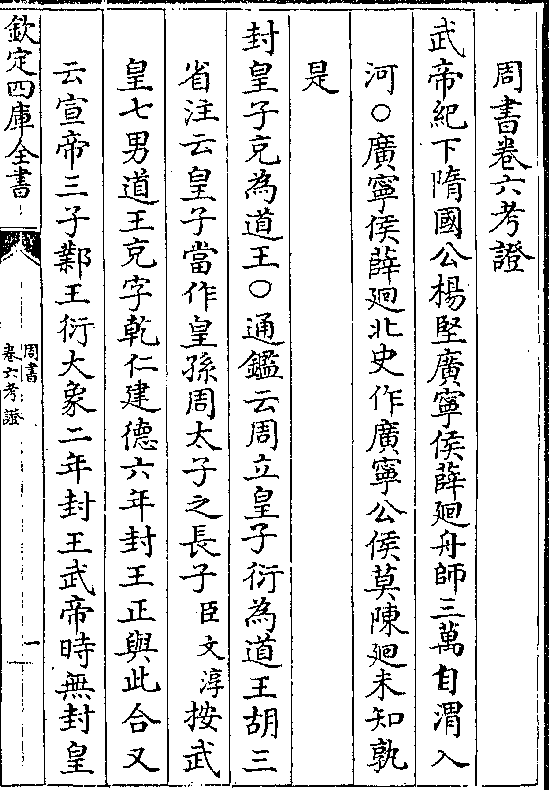 周書卷六考證
武帝紀下隋國公楊堅廣寧侯薛廻舟師三萬自渭入
河○廣寧侯薛廻北史作廣寧公侯莫陳廻未知孰
是
封皇子充為道王○通鑑云周立皇子衍為道王胡三
省注云皇子當作皇孫周太子之長子臣文淳按武
皇七男道王充字乾仁建德六年封王正與此合又
云宣帝三子鄴王衍大象二年封王武帝時無封皇
欽定四庫全書
周書
卷六考證
一